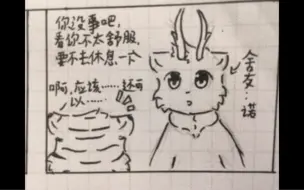 你没事吧，
看你不太舒服，
要不去休息一下
啊，应该……还可
以……
舍友：诺